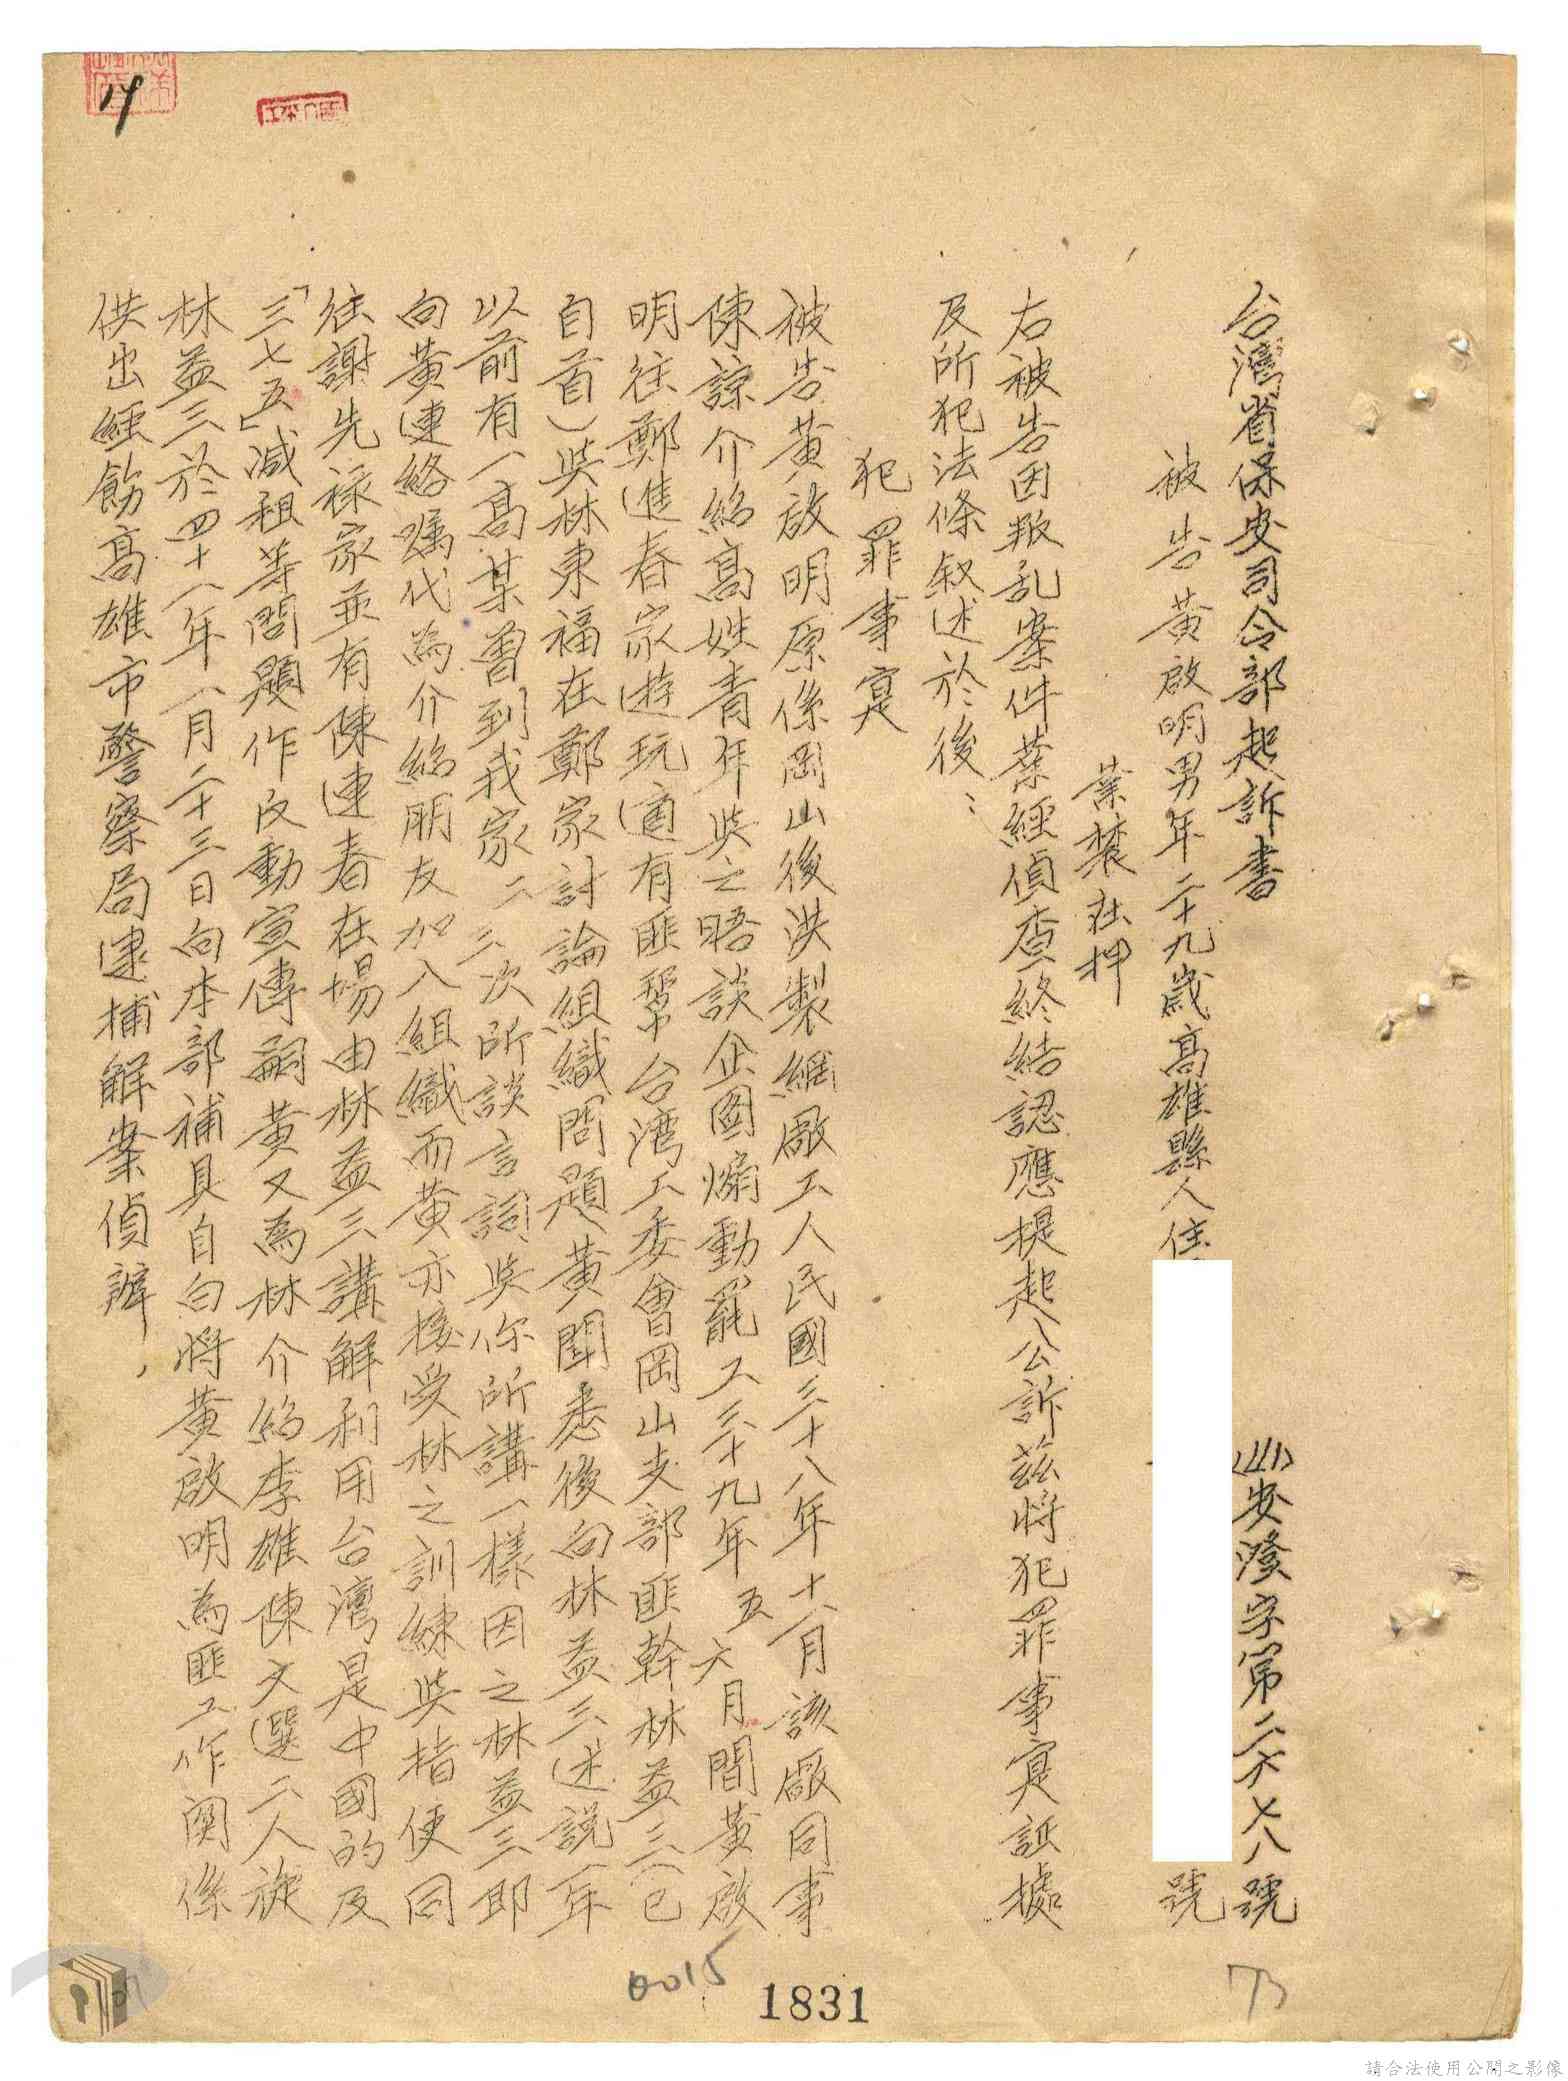 台灣省保安司令部起訴書
安澄字第二六七八號
被告黃啟明男年二十九歲高雄縣人住
號
業農在押
右被告因叛乱案件業經偵查終結認應提起公訴茲將犯罪事實証據
及所犯法條叙述於後：
犯罪事實
被告黃啟明原係岡山後洪製網廠工人民國三十八年十一月該廠同事
陳諒介紹高姓青年與之晤談企圖煽動罷工三十九年五六月間黃啟
明往鄭進春家遊玩適有匪幫台湾工委會岡山支部匪幹林益三（已
自首）與林東福在鄭家討論組織問題黃聞悉後向林益三述說「年
以前有一高某曾到我家二三次所談言詞與你所講一樣因之林益三即
向黃連絡囑代為介紹朋友加入組織而黃亦接受林之訓練與指使同
往謝先祿家並有陳連春在場由林益三講解利用台灣是中國的及
「三七五」減租等問題作反動宣傳嗣黃又為林介紹李雄陳文選二人旋
林益三於四十一年一月二十三日向本部補具自白將黃啟明為匪工作関係
供出經飭高雄市警察局逮捕解案偵辦，
19
0015
1831
73
請合法使用公開之影像